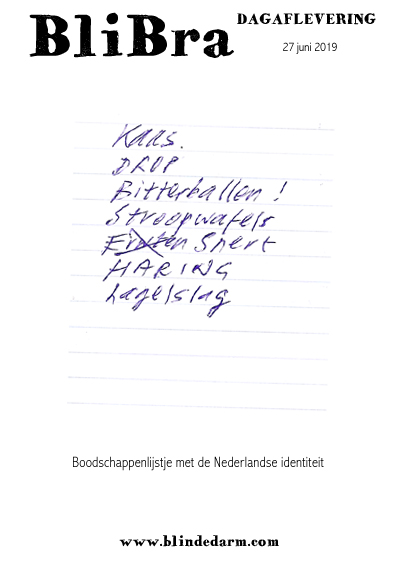 BliBra DAGAFLEVERING
27 juni 2019
Kaas.
DROP
Bitterballen !
Stroopwafels
Erwten Snert
HARING
hagelslag
Boodschappenlijstje met de Nederlandse identiteit
www.blindedarm.com